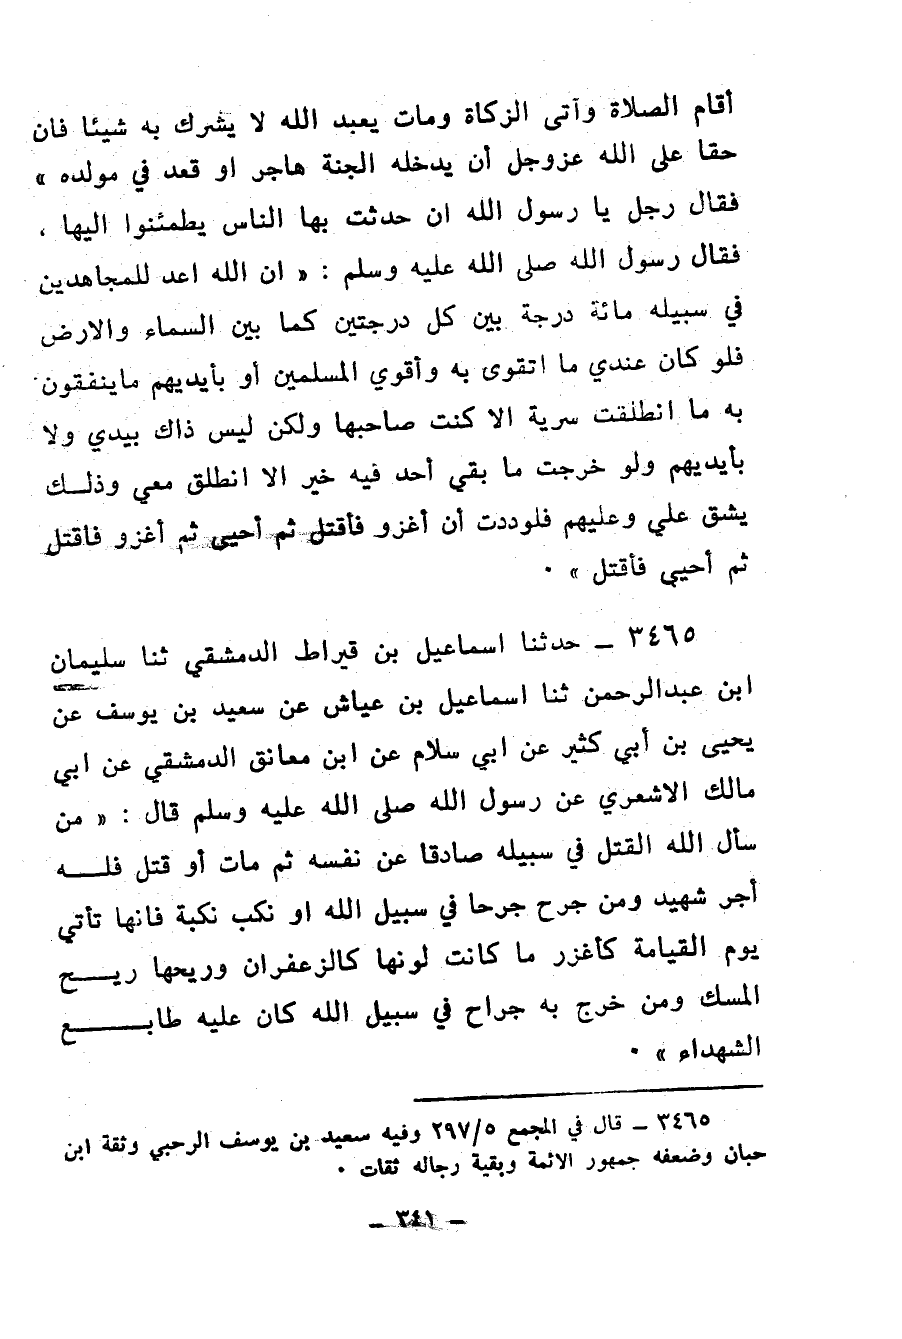 أقام الصلاة وآتى الزكاة ومات يعبد الله لا يشرك به شيئا فان
حقا على الله عزوجل أن يدخله الجنة هاجر او قعد في مولده »
فقال رجل يا رسول الله ان حدثت بها الناس يطمئنوا اليها ،
فقال رسول الله صلى الله عليه وسلم : « ان الله اعد للمجاهدين
في سبيله مائة درجة بين كل درجتين كما بين السماء والارض
فلو كان عندي ما اتقوى به وأقوي المسلمين أو بأيديهم ماينفقون
به ما انطلقت سرية الا كنت صاحبها ولكن ليس ذاك بيدي ولا
بأيديهم ولو خرجت ما بقي أحد فيه خير الا انطلق معي وذلــك
يشق علي وعليهم فلوددت أن أغزو فأقتل ثم أحيى ثم أغزو فاقتل
ثم أحيي فأقتل » ٠
٣٤٦٥ ــ حدثنا اسماعيل بن قيراط الدمشقي ثنا سليمان
ابن عبدالرحمن ثنا اسماعيل بن عياش عن سعيد بن يوسف عن
يحيى بن أبي كثير عن ابي سلام عن ابن معانق الدمشقي عن ابي
مالك الاشعري عن رسول الله صلى الله عليه وسلم قال : « من
سأل الله القتل في سبيله صادقا عن نفسه ثم مات أو قتل فلـــه
أجر شهيد ومن جرح جرحا في سبيل الله او نكب نكبة فانها تأتي
يوم القيامة كأغزر ما كانت لونها كالزعفران وريحها ريـــح
المسك ومن خرج به جراح في سبيل الله كان عليه طابـــــع
الشهداء » ٠
٣٤٦٥ ــ قال في المجمع ٢٩٧/٥ وفيه سعيد بن يوسف الرحبي وثقة ابن
حبان وضعفه جمهور الائمة وبقية رجاله ثقات ٠
ــ ٣٤١ ــ